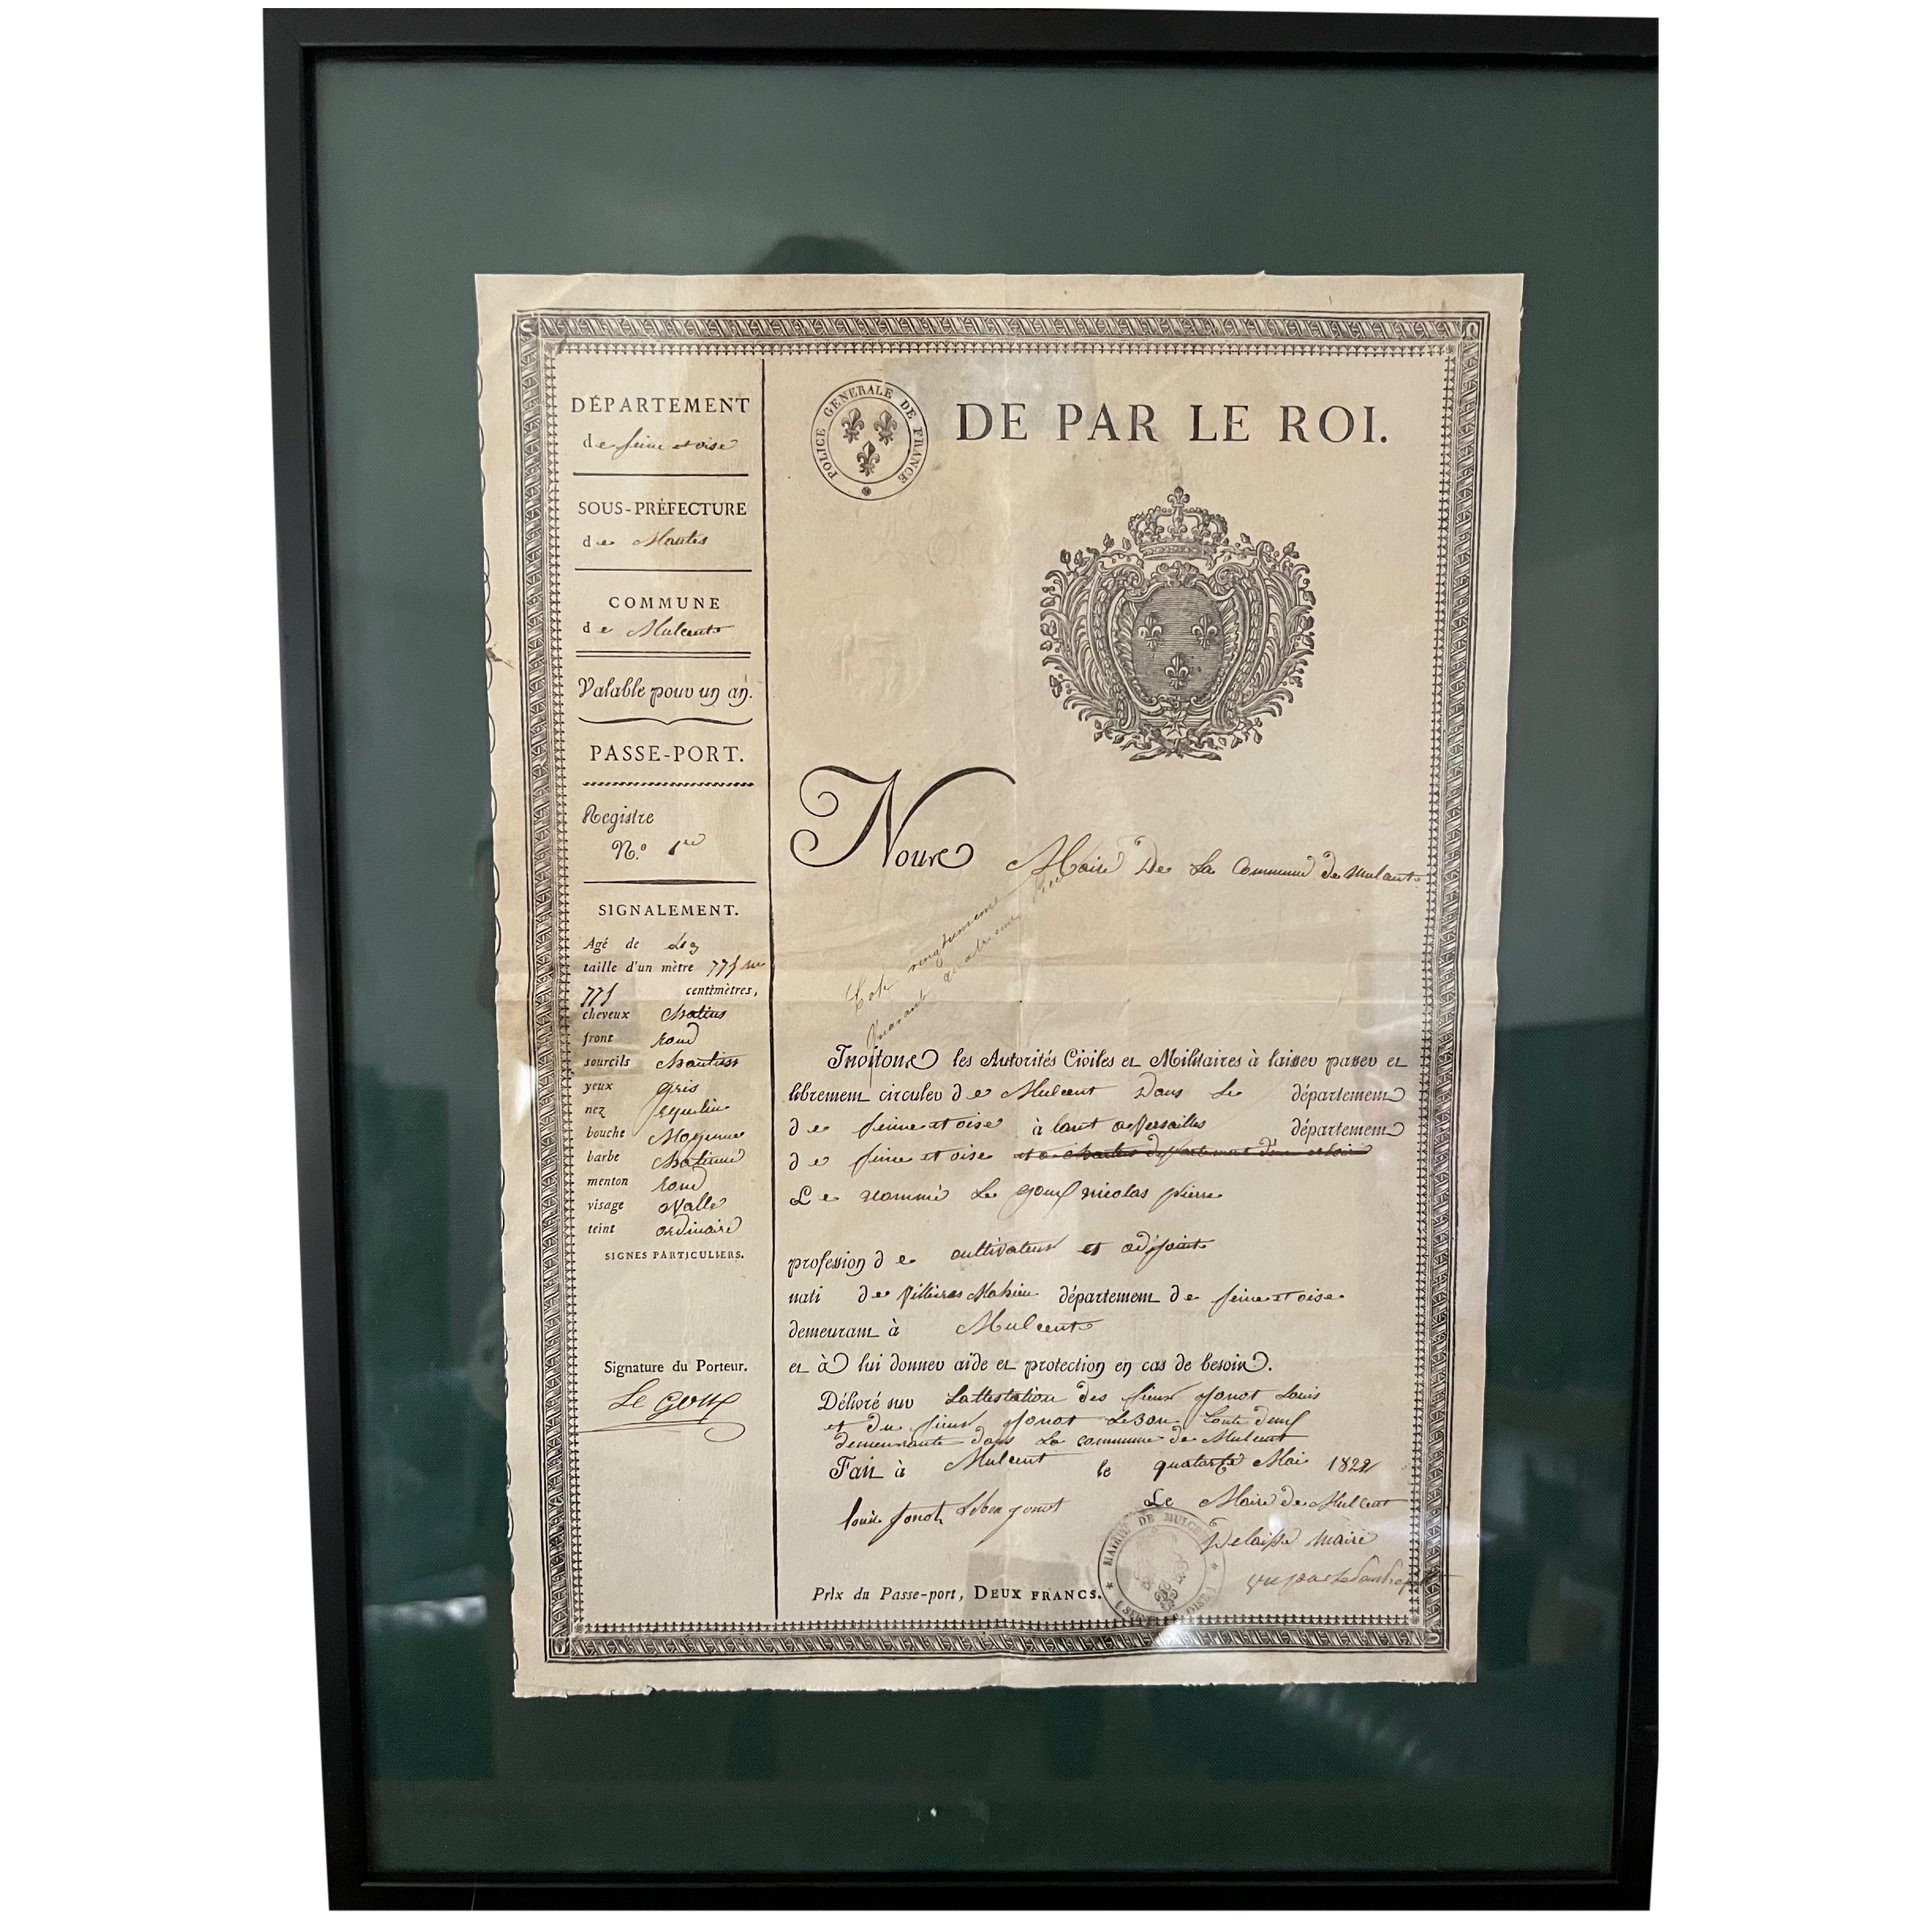 DÉPARTEMENT
de seine et oise
SOUS-PRÉFECTURE
de Mantes
COMMUNE
de Mulcent
Valable pour un an.
PASSE-PORT.
Registre
N.º
SIGNALEMENT.
Agé de
taille d'un mètre 775
775 centimètres,
cheveux Chatins
front rond
sourcils
yeux gris
nez
bouche Moyenne
barbe
menton rond
visage ovalle
teint ordinaire
SIGNES PARTICULIERS.
Signature du Porteur.
Le Goux
POLICE GENERALE DE FRANCE
DE PAR LE ROI.
Nous Maire De La Commune de Mulcent
Invitons les Autorités Civiles et Militaires à laisser passer et
librement circuler de Mulcent Dans Le département
de seine et oise à département
de seine et oise
Le nommé Le goux nicolas pierre
profession de cultivateur et adjoint
natif de département de seine et oise
demeurant à Mulcent
et à lui donner aide et protection en cas de besoin.
Délivré sur Lattestation des sieur jonot Louis
et du sieur jonot Lebon
demeurante dans La commune de Mulcent
Fait à Mulcent le quatorze Mai 1822
Le Maire de Mulcent
louis jonot Lebon jonot
Delaisse maire
MAIRIE DE MULCENT
Prix du Passe-port, DEUX FRANCS.